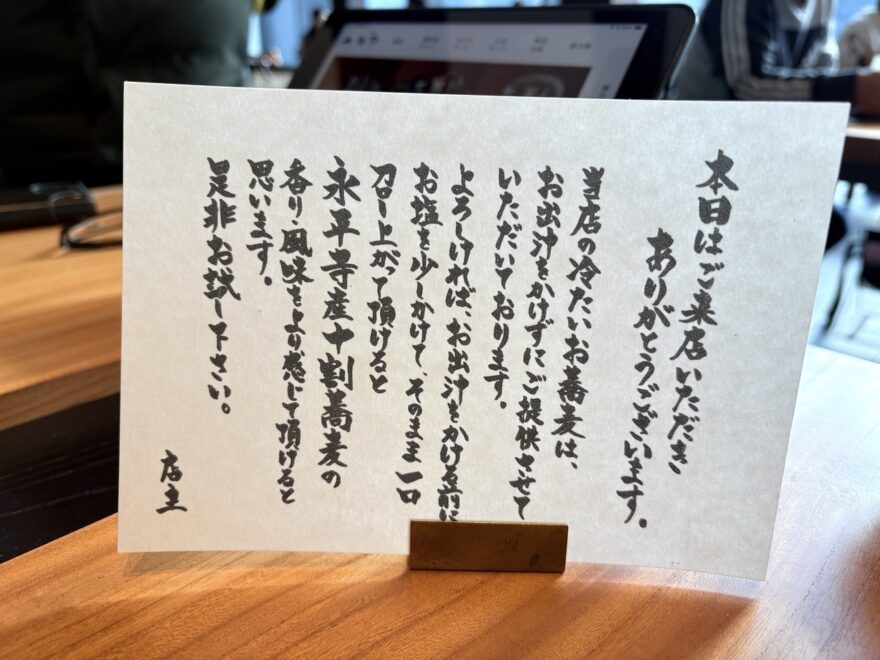 本日はご来店いただき
ありがとうございます。
当店の冷たいお蕎麦は、
お出汁をかけずにご提供させて
いただいております。
よろしければ、お出汁をかける前に
お塩を少しかけて、そのまま一口
召し上がって頂けると
永平寺産十割蕎麦の
香り・風味をより感じて頂けると
思います。
是非お試し下さい。
店主